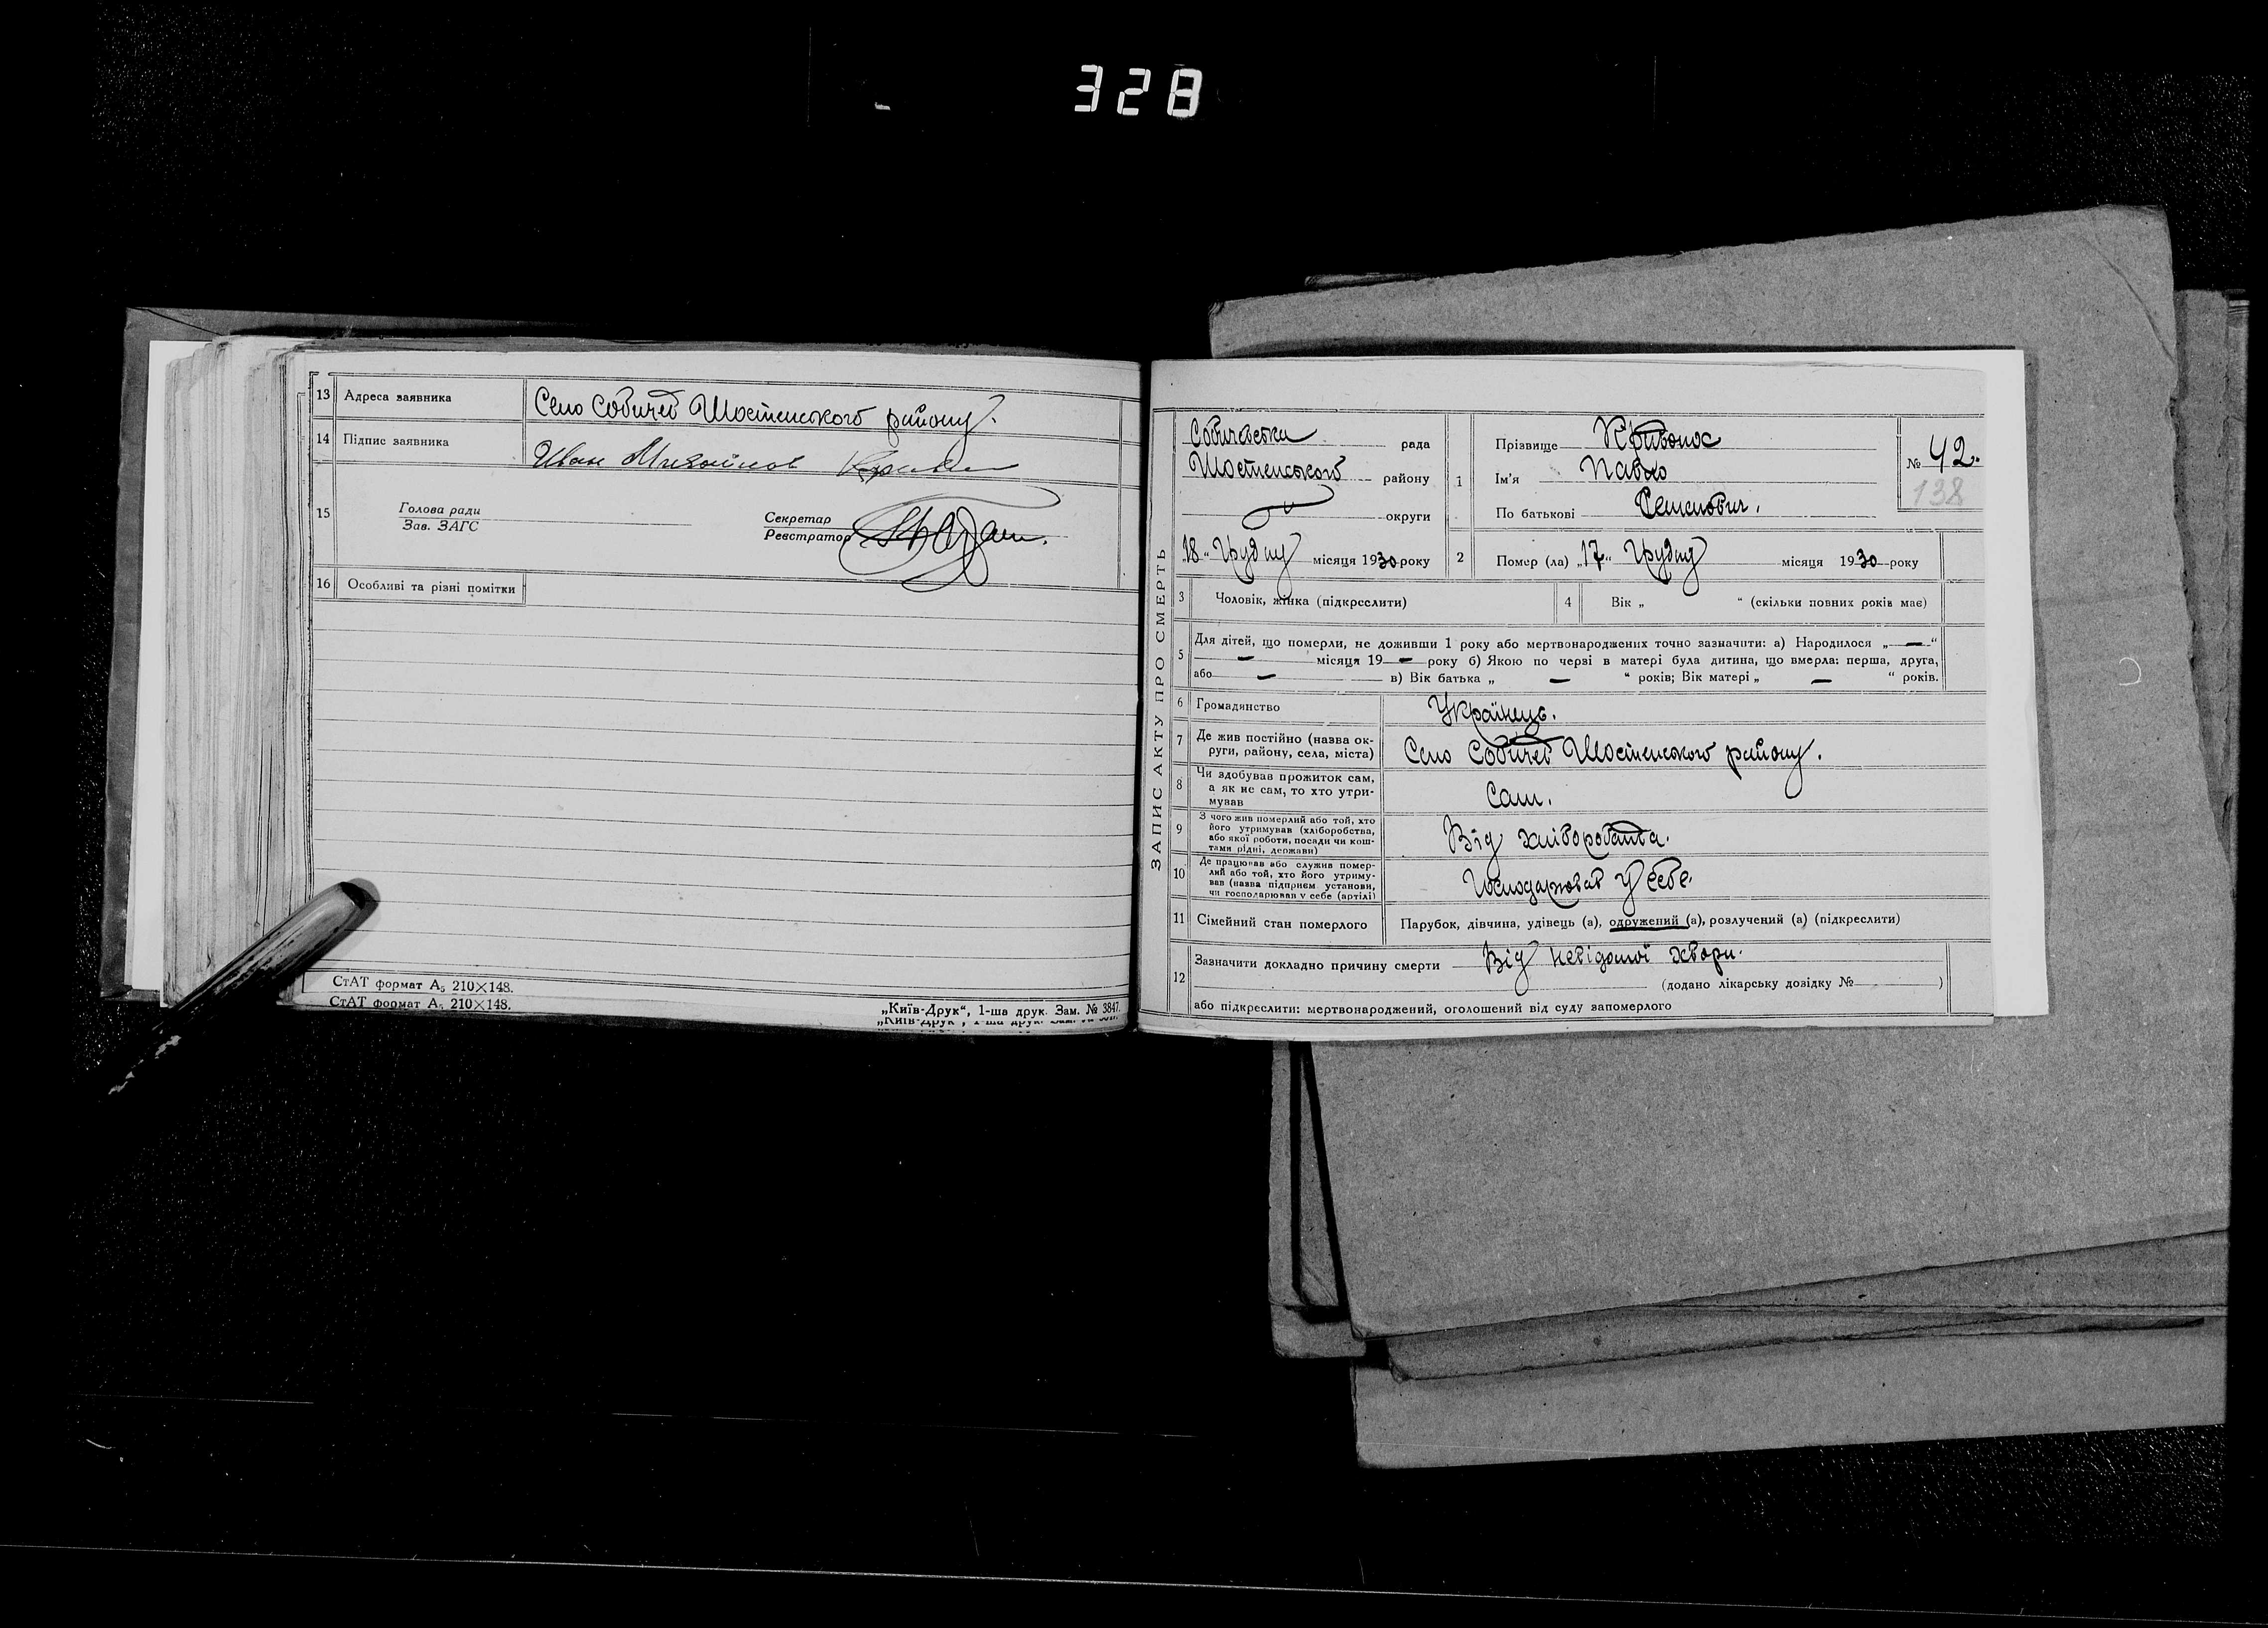 328
13 Адреса заявника Село Собичев Шостенського району.
14 Підпис заявника Иван Михайлов
15 Голова ради
Зав. ЗАГС
Секретар
Реєстратор
16 Особливі та різні помітки
СтАТ формат А₅ 210×148.
СтАТ формат А₅ 210×148.
„Київ-Друк“, 1-ша друк. Зам. № 3847.
ЗАПИС АКТУ ПРО СМЕРТЬ
Собичевська рада
Шостенського району
округи
„18“ Грудня місяця 1930 року
1 Прізвище Кривонос
Ім'я Павло
По батькові Семенович.
№ 42.
138
2 Помер (ла) „17“ Грудня місяця 1930 року
3 Чоловік, жінка (підкреслити)
4 Вік „ “ (скільки повних років має)
5 Для дітей, що померли, не доживши 1 року або мертвонароджених точно зазначити: а) Народилося „—“
— місяця 19— року б) Якою по черзі в матері була дитина, що вмерла: перша, друга,
або — в) Вік батька „ — “ років; Вік матері „ — “ років.
6 Громадянство Українець.
7 Де жив постійно (назва ок-
руги, району, села, міста) Село Собичев Шостенського району.
8 Чи здобував прожиток сам,
а як не сам, то хто утри-
мував Сам.
9 З чого жив померлий або той, хто
його утримував (хліборобства,
або якої роботи, посади чи кош-
тами рідні, держави) Від хліборобства.
10 Де працював або служив помер-
лий або той, хто його утриму-
вав (назва підприєм установи,
чи господарював у себе (артілі) Господарював у себе.
11 Сімейний стан померлого Парубок, дівчина, удівець (а), одружений (а), розлучений (а) (підкреслити)
12 Зазначити докладно причину смерти Від невідомої хвори.
(додано лікарську довідку № )
або підкреслити: мертвонароджений, оголошений від суду запомерлого